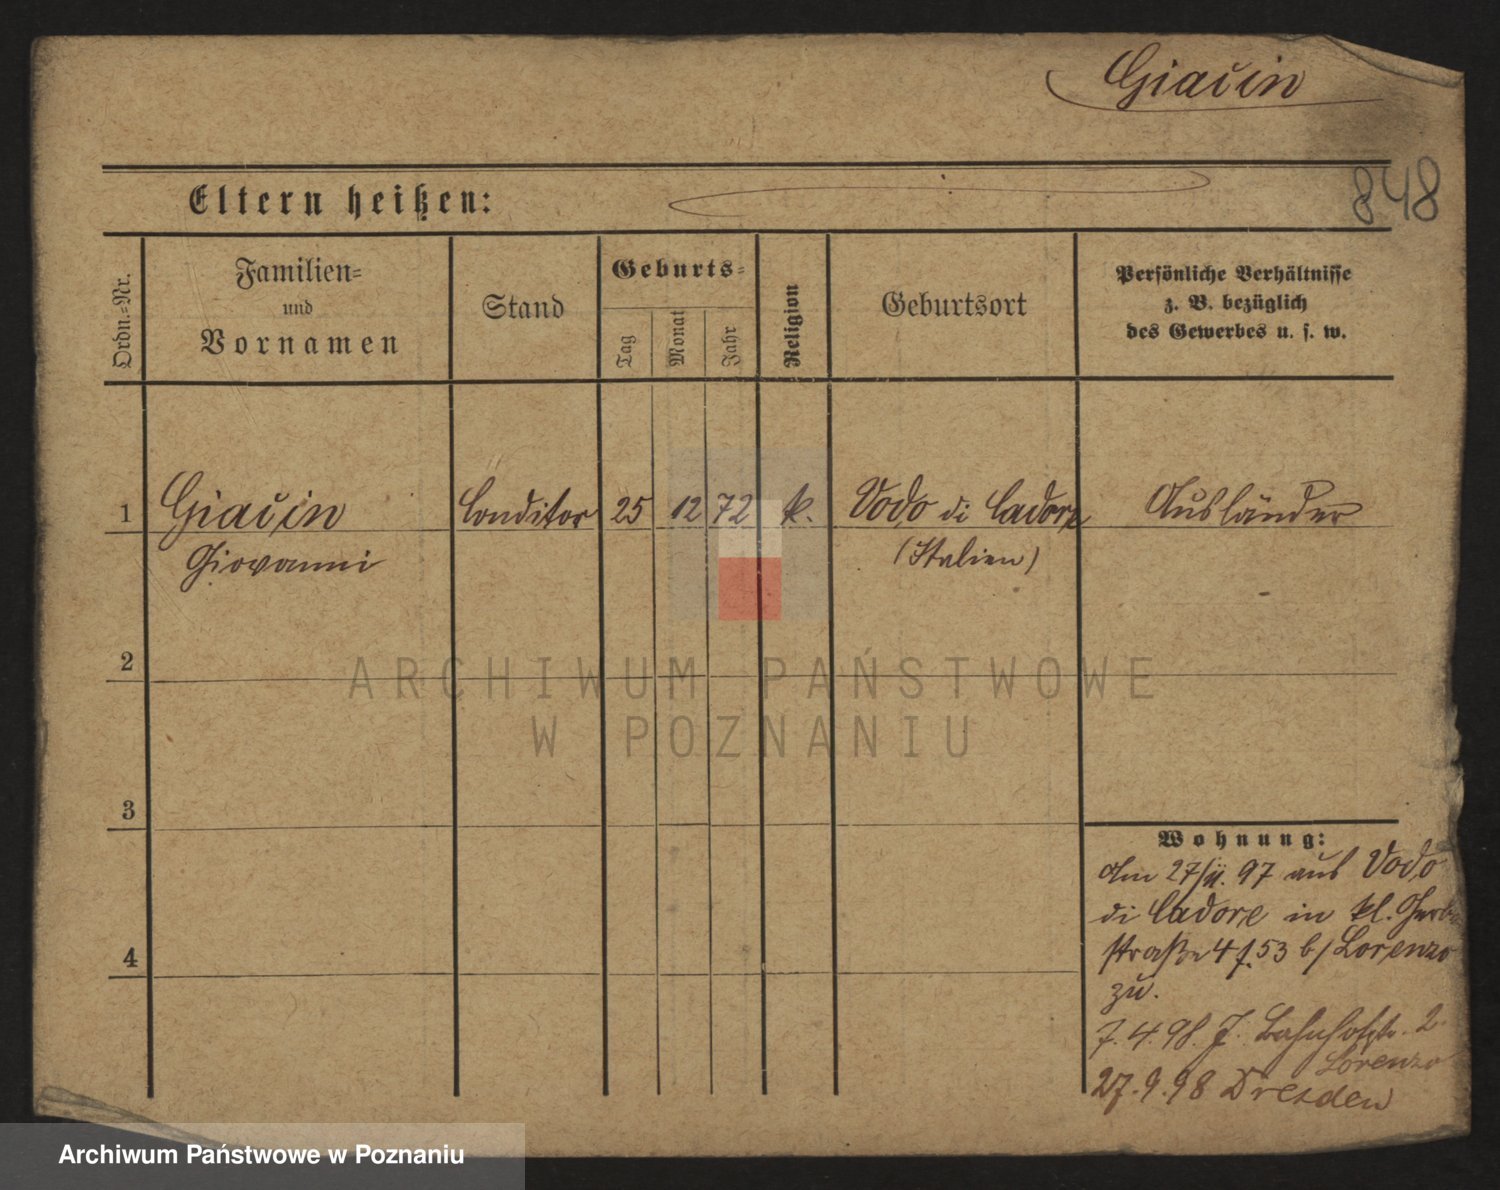 Giacin
848
Eltern heißen:
Ordn.-Nr.
Familien-
und
Vornamen
Stand
Geburts-
Tag
Monat
Jahr
Religion
Geburtsort
Persönliche Verhältnisse
z. B. bezüglich
des Gewerbes u. s. w.
1 Giacin Conditor 25 12 72 k. Vodo di Cadore Ausländer
Giovanni (Italien)
2
ARCHIWUM PAŃSTWOWE
W POZNANIU
3
Wohnung:
Am 27/11. 97 aus Vodo
di Cadore in kl. Gerber
straße 4 f. 53 b/ Lorenzo
zu.
4
7. 4. 98. J. Bahnhofstr. 2.
Lorenzo
27. 9. 98 Dresden
Archiwum Państwowe w Poznaniu